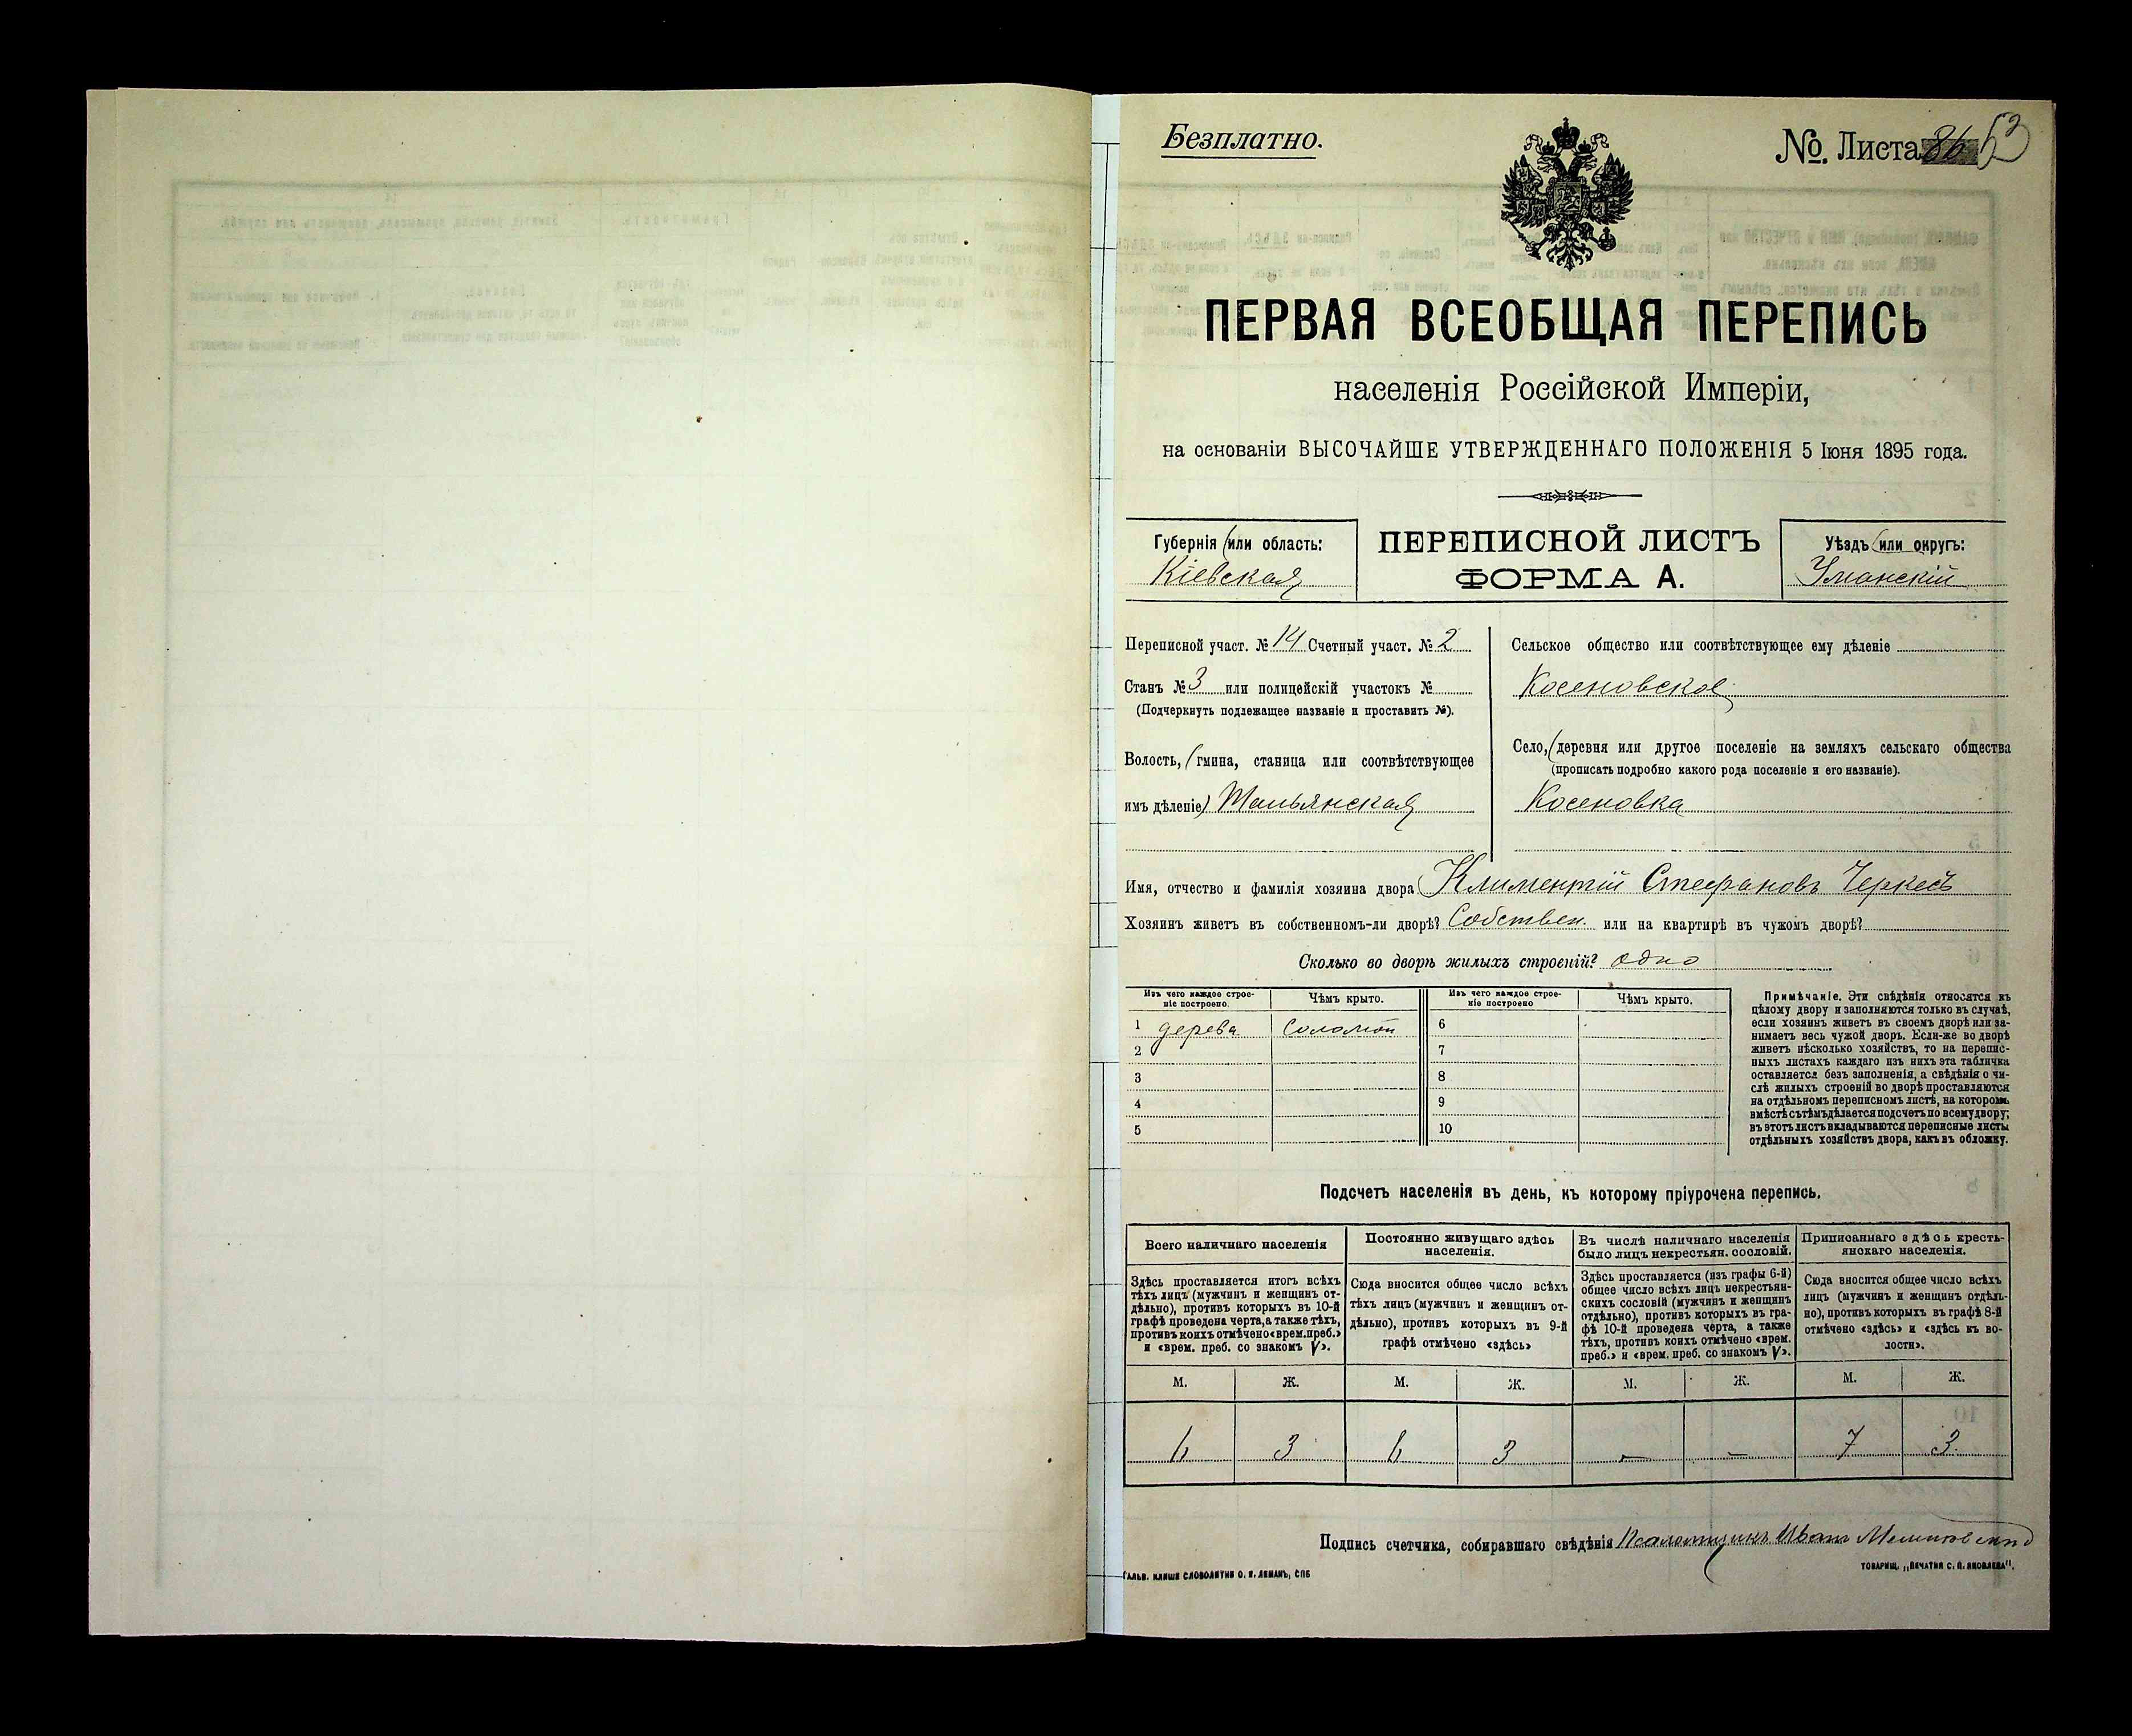 Безплатно.
№. Листа 86 53
ПЕРВАЯ ВСЕОБЩАЯ ПЕРЕПИСЬ
населенія Россійской Имперіи,
на основаніи ВЫСОЧАЙШЕ УТВЕРЖДЕННАГО ПОЛОЖЕНІЯ 5 Іюня 1895 года.
Губернія (или область:
Кіевская
ПЕРЕПИСНОЙ ЛИСТЪ
ФОРМА А.
Уѣздъ (или округъ:
Уманскій
Переписной участ. № 14 Счетный участ. № 2
Станъ № 3 или полицейскій участокъ №
(Подчеркнуть подлежащее названіе и проставить №).
Волость, (гмина, станица или соотвѣтствующее
имъ дѣленіе) Тальянская
Сельское общество или соотвѣтствующее ему дѣленіе
Косеновское
Село, (деревня или другое поселеніе на земляхъ сельскаго общества
(прописать подробно какого рода поселеніе и его названіе).
Косеновка
Имя, отчество и фамилія хозяина двора Климентій Стефановъ Черкесъ
Хозяинъ живетъ въ собственномъ-ли дворѣ? Собствен. или на квартирѣ въ чужомъ дворѣ?
Сколько во дворѣ жилыхъ строеній? одно
Изъ чего каждое строе-
ніе построено.
Чѣмъ крыто.
Изъ чего каждое строе-
ніе построено
Чѣмъ крыто.
1 дерева Соломой 6
2 7
3 8
4 9
5 10
Примѣчаніе. Эти свѣдѣнія относятся къ
цѣлому двору и заполняются только въ случаѣ,
если хозяинъ живетъ въ своемъ дворѣ или за-
нимаетъ весь чужой дворъ. Если-же во дворѣ
живетъ нѣсколько хозяйствъ, то на перепис-
ныхъ листахъ каждаго изъ нихъ эта табличка
оставляется безъ заполненія, а свѣдѣнія о чи-
слѣ жилыхъ строеній во дворѣ проставляются
на отдѣльномъ переписномъ листѣ, на которомъ
вмѣстѣ съ тѣмъ дѣлается подсчетъ по всему двору;
въ этотъ листъ вкладываются переписные листы
отдѣльныхъ хозяйствъ двора, какъ въ обложку.
Подсчетъ населенія въ день, къ которому пріурочена перепись.
Всего наличнаго населенія
Здѣсь проставляется итогъ всѣхъ
тѣхъ лицъ (мужчинъ и женщинъ от-
дѣльно), противъ которыхъ въ 10-й
графѣ проведена черта, а также тѣхъ,
противъ коихъ отмѣчено «врем. преб.»
и «врем. преб. со знакомъ V».
Постоянно живущаго здѣсь
населенія.
Сюда вносится общее число всѣхъ
тѣхъ лицъ (мужчинъ и женщинъ от-
дѣльно), противъ которыхъ въ 9-й
графѣ отмѣчено «здѣсь»
Въ числѣ наличнаго населенія
было лицъ некрестьян. сословій.
Здѣсь проставляется (изъ графы 6-й)
общее число всѣхъ лицъ некрестьян-
скихъ сословій (мужчинъ и женщинъ
отдѣльно), противъ которыхъ въ гра-
фѣ 10-й проведена черта, а также
тѣхъ, противъ коихъ отмѣчено «врем.
преб.» и «врем. преб. со знакомъ V».
Приписаннаго здѣсь кресть-
янскаго населенія.
Сюда вносится общее число всѣхъ
лицъ (мужчинъ и женщинъ отдѣль-
но), противъ которыхъ въ графѣ 8-й
отмѣчено «здѣсь» и «здѣсь къ во-
лости».
М. Ж. М. Ж. М. Ж. М. Ж.
6 3 6 3 — — 7 3
Подпись счетчика, собиравшаго свѣдѣнія Псаломщикъ Иванъ
ГАЛЬВ. КЛИШЕ СЛОВОЛИТНИ О. И. ЛЕМАНЪ, СПБ
ТОВАРИЩ. „ПЕЧАТНЯ С. П. ЯКОВЛЕВА".